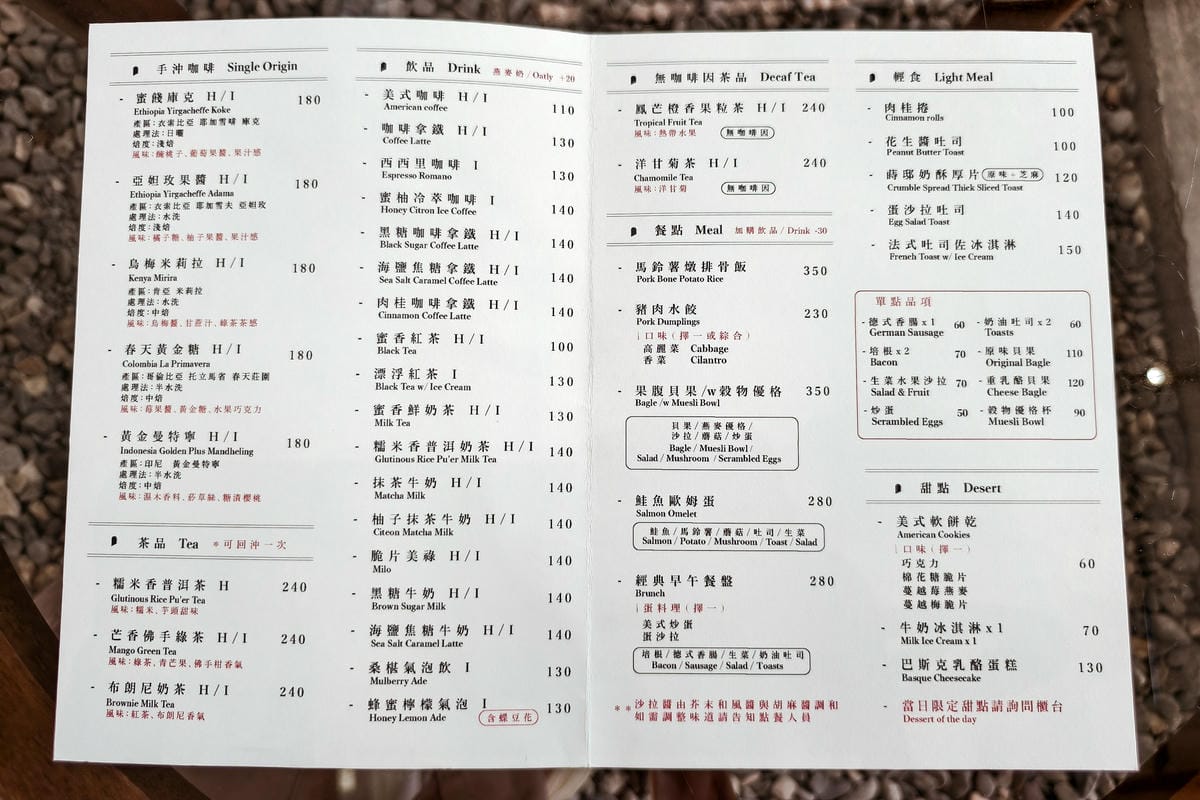 手沖咖啡 Single Origin
- 蜜餞庫克 H/I 180
Ethiopia Yirgacheffe Koke
產區:衣索比亞 耶加雪啡 庫克
處理法:日曬
焙度:淺焙
風味:醃桃子、葡萄果醬、果汁感
- 亞妲玫果醬 H/I 180
Ethiopia Yirgacheffe Adama
產區:衣索比亞 耶加雪夫 亞妲玫
處理法:水洗
焙度:淺焙
風味:橘子糖、柚子果醬、果汁感
- 烏梅米莉拉 H/I 180
Kenya Mirira
產區:肯亞 米莉拉
處理法:水洗
焙度:中焙
風味:烏梅醬、甘蔗汁、綠茶茶感
- 春天黃金糖 H/I 180
Colombia La Primavera
產區:哥倫比亞 托立馬省 春天莊園
處理法:半水洗
焙度:中焙
風味:莓果醬、黃金糖、水果巧克力
- 黃金曼特寧 H/I 180
Indonesia Golden Plus Mandheling
產區:印尼 黃金曼特寧
處理法:半水洗
焙度:中焙
風味:濕木香料、菸草絲、糖漬櫻桃
茶品 Tea *可回沖一次
- 糯米香普洱茶 H 240
Glutinous Rice Pu'er Tea
風味:糯米、芋頭甜味
- 芒香佛手綠茶 H/I 240
Mango Green Tea
風味:綠茶、青芒果、佛手柑香氣
- 布朗尼奶茶 H/I 240
Brownie Milk Tea
風味:紅茶、布朗尼香氣
飲品 Drink 燕麥奶/Oatly +20
- 美式咖啡 H/I 110
American coffee
- 咖啡拿鐵 H/I 130
Coffee Latte
- 西西里咖啡 I 130
Espresso Romano
- 蜜柚冷萃咖啡 I 140
Honey Citron Ice Coffee
- 黑糖咖啡拿鐵 H/I 140
Black Sugar Coffee Latte
- 海鹽焦糖拿鐵 H/I 140
Sea Salt Caramel Coffee Latte
- 肉桂咖啡拿鐵 H/I 140
Cinnamon Coffee Latte
- 蜜香紅茶 H/I 100
Black Tea
- 漂浮紅茶 I 130
Black Tea w/ Ice Cream
- 蜜香鮮奶茶 H/I 130
Milk Tea
- 糯米香普洱奶茶 H/I 140
Glutinous Rice Pu'er Milk Tea
- 抹茶牛奶 H/I 140
Matcha Milk
- 柚子抹茶牛奶 H/I 140
Citeon Matcha Milk
- 脆片美祿 H/I 140
Milo
- 黑糖牛奶 H/I 140
Brown Sugar Milk
- 海鹽焦糖牛奶 H/I 140
Sea Salt Caramel Latte
- 桑椹氣泡飲 I 130
Mulberry Ade
- 蜂蜜檸檬氣泡 I 130
Honey Lemon Ade 含蝶豆花
無咖啡因茶品 Decaf Tea
- 鳳芒橙香果粒茶 H/I 240
Tropical Fruit Tea
風味:熱帶水果 無咖啡因
- 洋甘菊茶 H/I 240
Chamomile Tea
風味:洋甘菊 無咖啡因
餐點 Meal 加購飲品/Drink -30
- 馬鈴薯燉排骨飯 350
Pork Bone Potato Rice
- 豬肉水餃 230
Pork Dumplings
|口味(擇一或綜合)
高麗菜 Cabbage
香菜 Cilantro
- 果腹貝果/w穀物優格 350
Bagle /w Muesli Bowl
貝果/燕麥優格/
沙拉/蘑菇/炒蛋
Bagle / Muesli Bowl /
Salad / Mushroom / Scrambled Eggs
- 鮭魚歐姆蛋 280
Salmon Omelet
鮭魚/馬鈴薯/蘑菇/吐司/生菜
Salmon / Potato / Mushroom / Toast / Salad
- 經典早午餐盤 280
Brunch
|蛋料理(擇一)
美式炒蛋
蛋沙拉
培根/德式香腸/生菜/奶油吐司
Bacon / Sausage / Salad / Toasts
**沙拉醬由芥末和風醬與胡麻醬調和
如需調整味道請告知點餐人員
輕食 Light Meal
- 肉桂捲 100
Cinnamon rolls
- 花生醬吐司 100
Peanut Butter Toast
- 蒔邸奶酥厚片 原味÷芝麻 120
Crumble Spread Thick Sliced Toast
- 蛋沙拉吐司 140
Egg Salad Toast
- 法式吐司佐冰淇淋 150
French Toast w/ Ice Cream
單點品項
- 德式香腸 x 1 60 - 奶油吐司 x 2 60
German Sausage Toasts
- 培根 x 2 70 - 原味貝果 110
Bacon Original Bagle
- 生菜水果沙拉 70 - 重乳酪貝果 120
Salad & Fruit Cheese Bagle
- 炒蛋 50 - 穀物優格杯 90
Scrambled Eggs Muesli Bowl
甜點 Desert
- 美式軟餅乾
American Cookies
|口味(擇一)
巧克力 60
棉花糖脆片
蔓越莓燕麥
蔓越梅脆片
- 牛奶冰淇淋 x 1 70
Milk Ice Cream x 1
- 巴斯克乳酪蛋糕 130
Basque Cheesecake
- 當日限定甜點請詢問櫃台
Dessert of the day